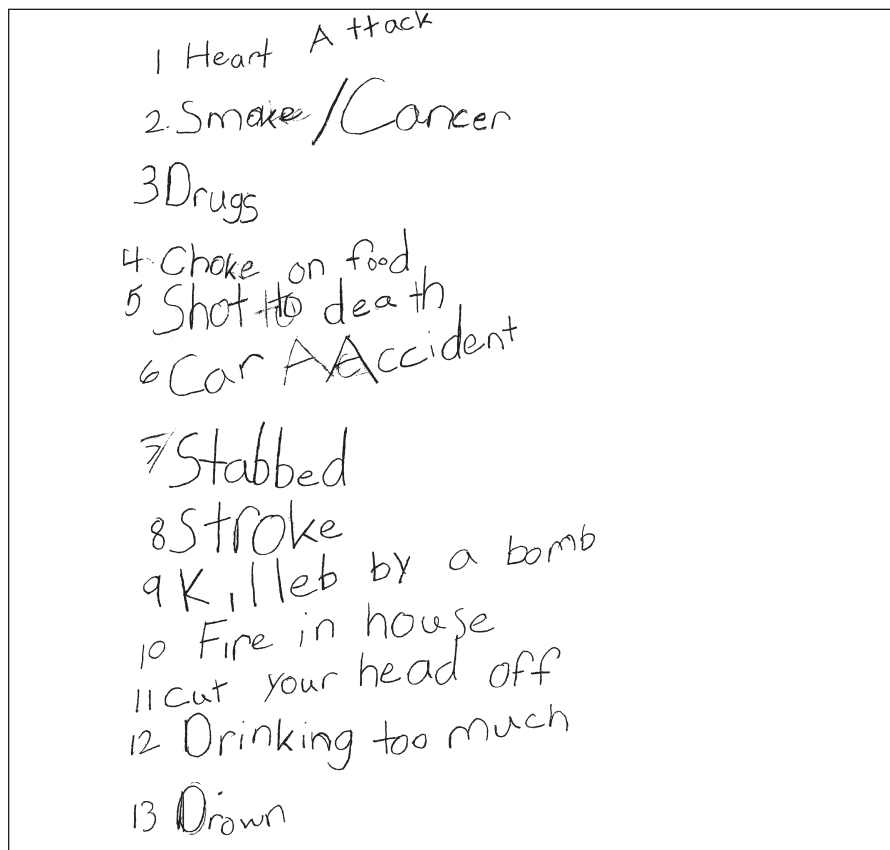 1 Heart Attack
2. Smoke/Cancer
3 Drugs
4. Choke on food
5 Shot to death
6 Car AAccident
7 Stabbed
8 Stroke
9 Killeb by a bomb
10 Fire in house
11 cut your head off
12 Drinking too much
13 Drown